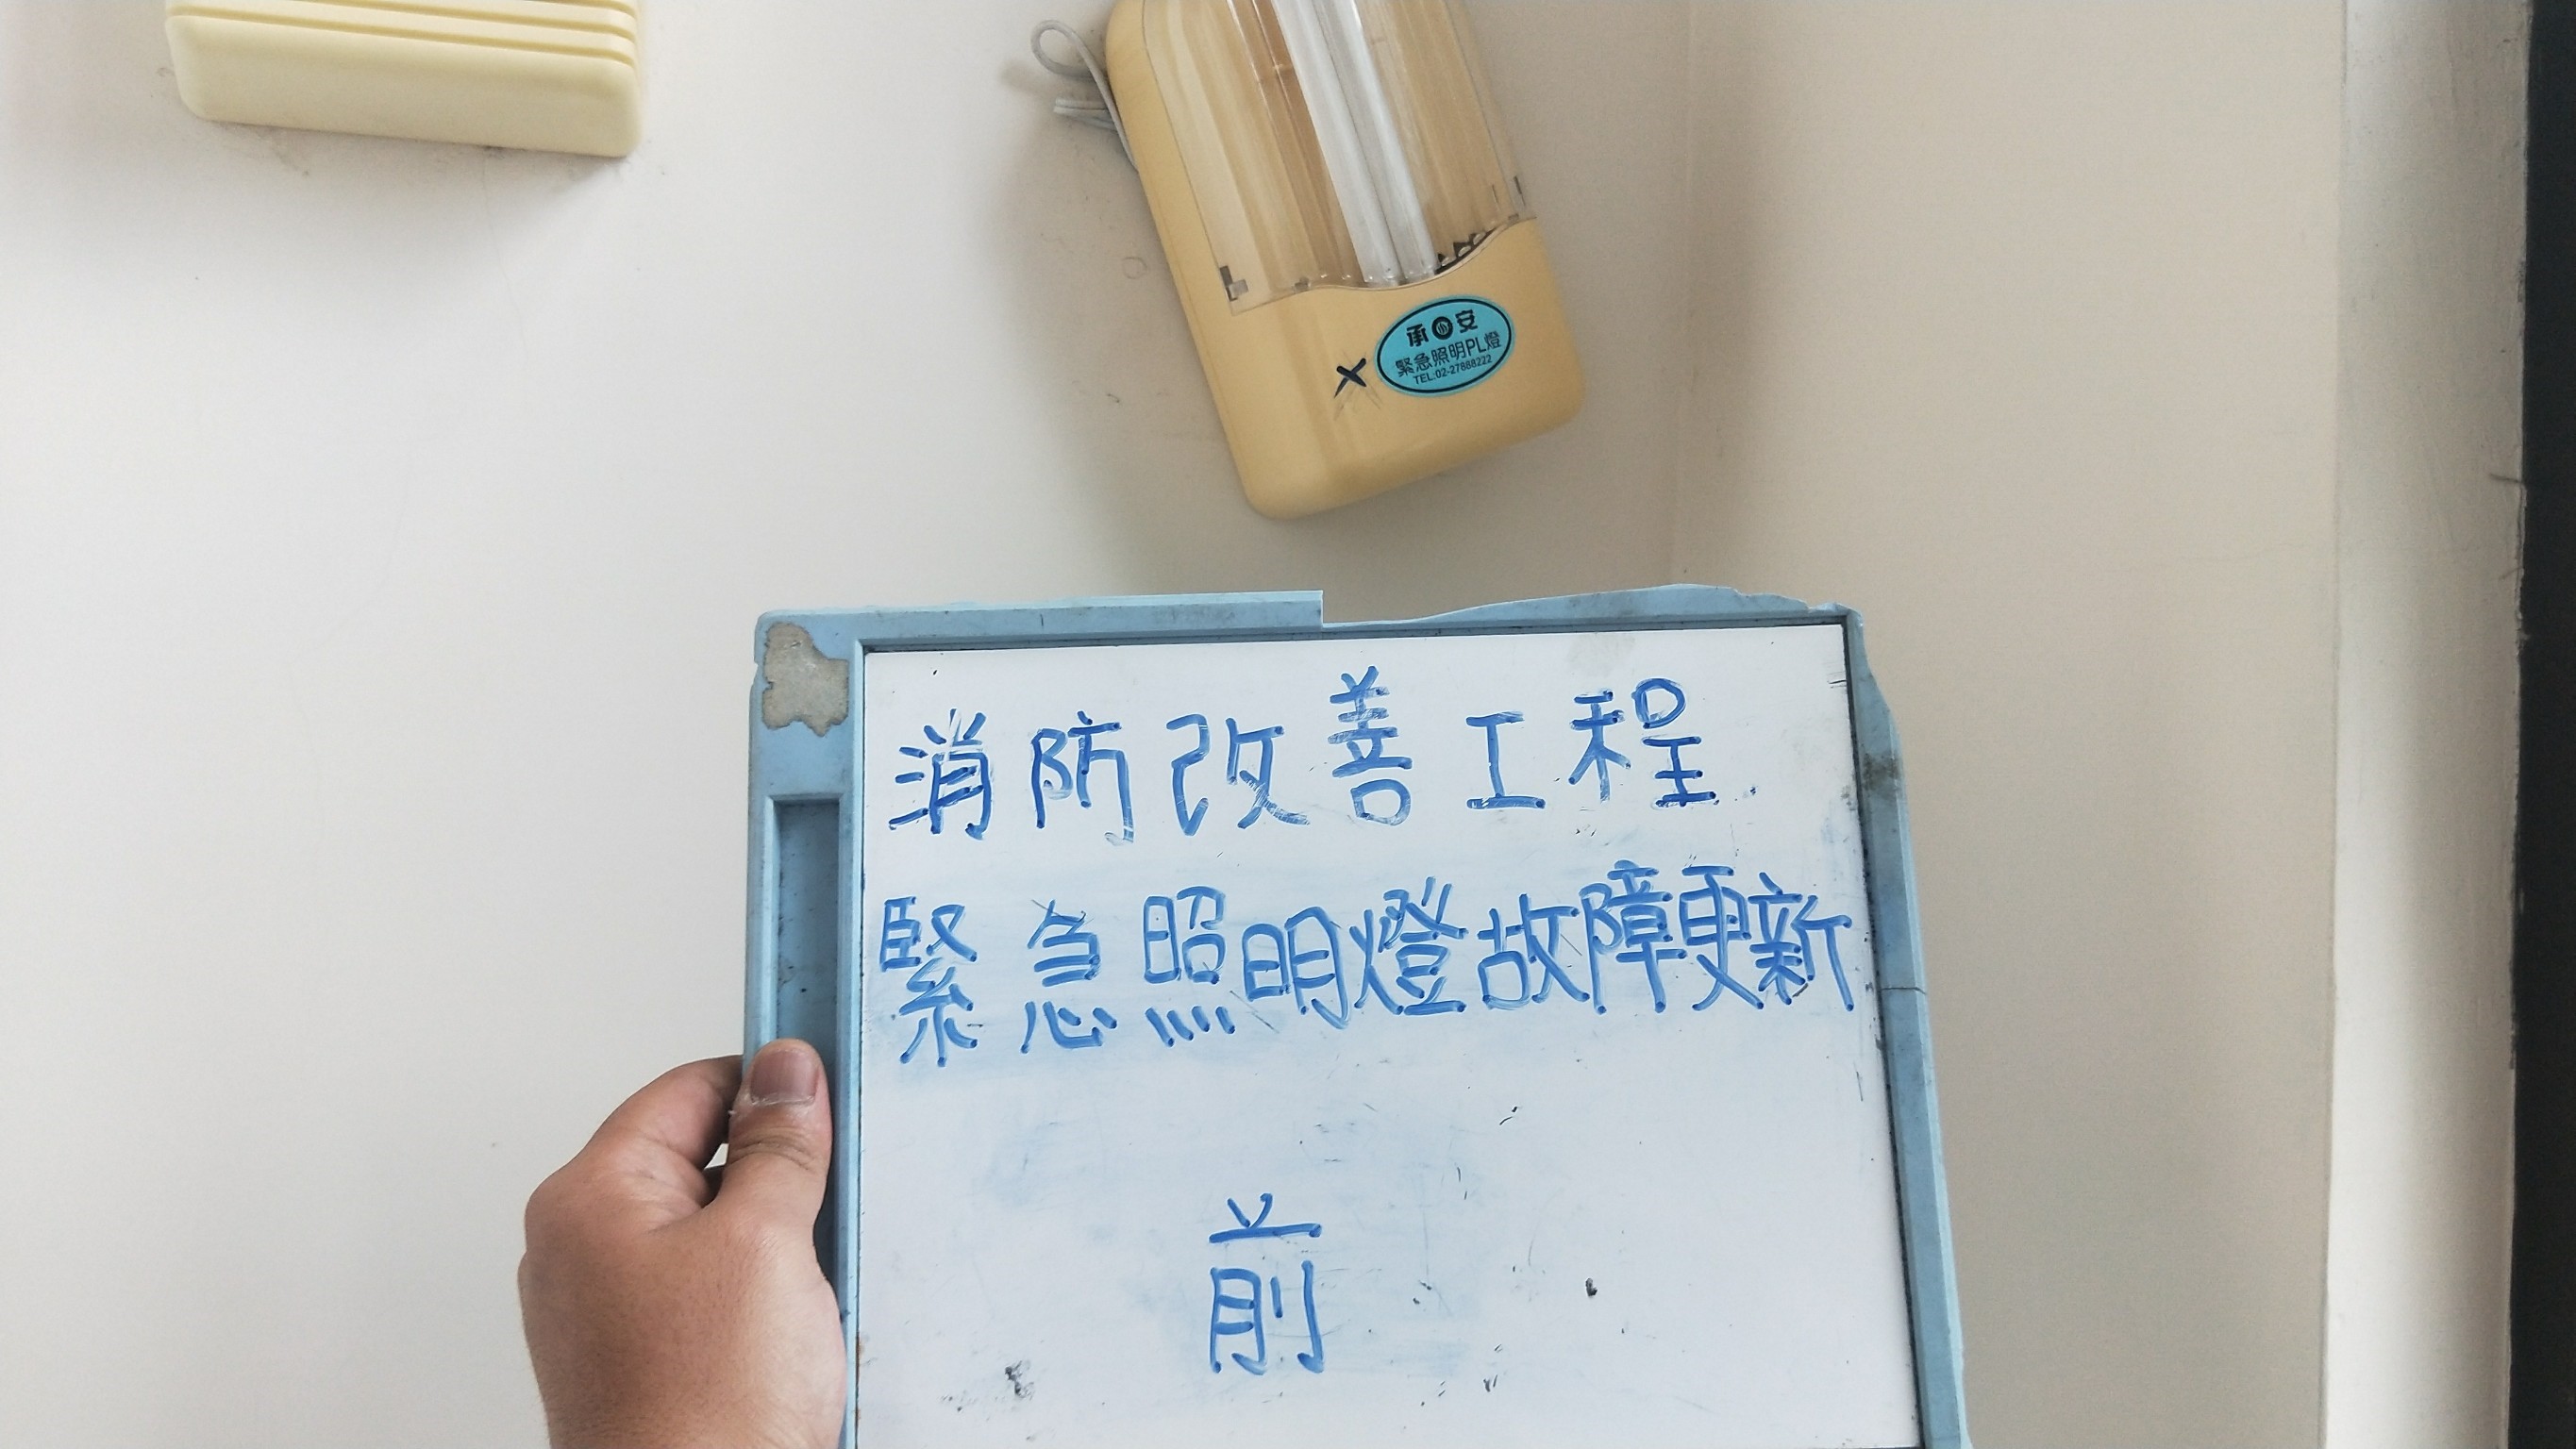 承安
緊急照明PL燈
TEL:02-27888222
消防改善工程
緊急照明燈故障更新
前